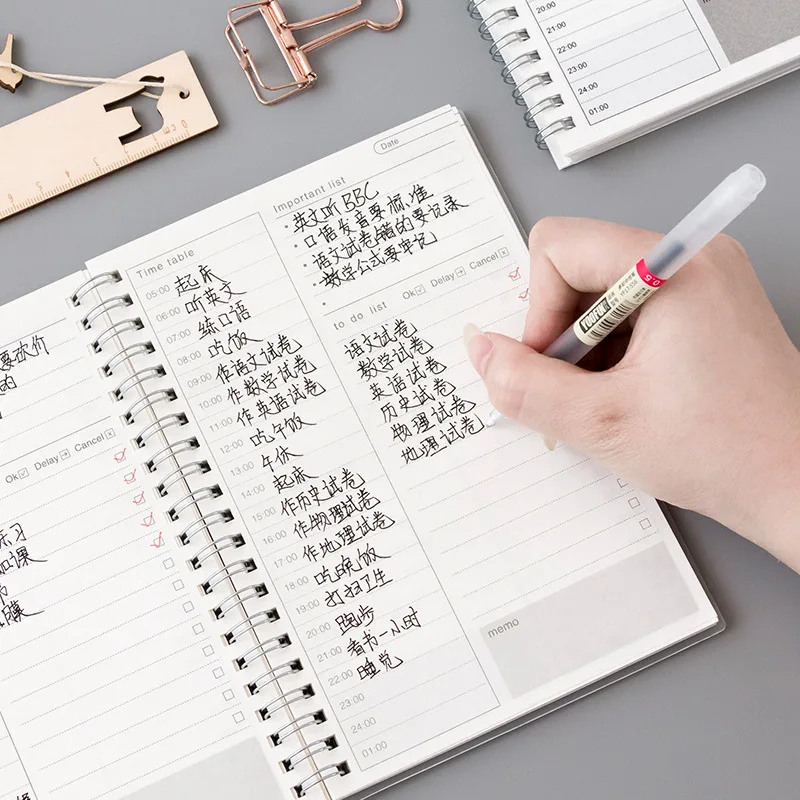 20:00
21:00
22:00
23:00
24:00
01:00
要砍价
的
Ok Delay Cancel
Time table
05:00 起床
06:00 听英文
07:00 练口语
08:00 吃饭
09:00 作语文试卷
10:00 作数学试卷
11:00 作英语试卷
12:00 吃午饭
13:00 午休
14:00 起床
15:00 作历史试卷
16:00 作物理试卷
17:00 作地理试卷
18:00 吃晚饭
19:00 打扫卫生
20:00 跑步
21:00 看书一小时
22:00 睡觉
23:00
24:00
01:00
Date
Important list
英文听BBC
口语发音要标准
语文试卷错的要记录
数学公式要牢记
to do list Ok Delay Cancel
语文试卷
数学试卷
英语试卷
历史试卷
物理试卷
地理试卷
memo
0.5